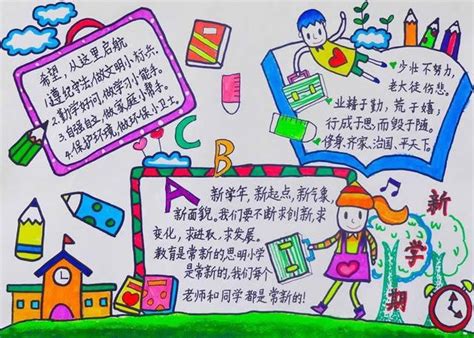 希望,从这里启航
1.遵纪守法,做文明小标兵。
2.勤学好问,做学习小能手。
3.自强自立,做家庭小帮手。
4.保护环境,做环保小卫士。
少壮不努力,
老大徒伤悲。
业精于勤,荒于嬉;
行成于思而毁于随。
修身、齐家、治国、平天下。
A
B
C
新学年,新起点,新气象,
新面貌,我们要不断求创新,求
变化,求进取,求发展。
教育是常新的思明小学
是常新的,我们每个
老师和同学都是常新的!
新学期